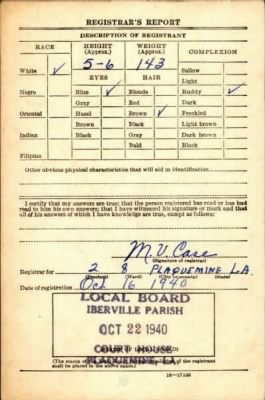 REGISTRAR'S REPORT
DESCRIPTION OF REGISTRANT
RACE HEIGHT (Approx.) WEIGHT (Approx.) COMPLEXION
White ✓ 5-6 143 Sallow
EYES HAIR Light
Negro Blue ✓ Blonde Ruddy ✓
Gray Red Dark
Oriental Hazel Brown ✓ Freckled
Brown Black Light brown
Indian Black Gray Dark brown
Bald Black
Filipino
Other obvious physical characteristics that will aid in identification
I certify that my answers are true; that the person registered has read or has had
read to him his own answers; that I have witnessed his signature or mark and that
all of his answers of which I have knowledge are true, except as follows:
M. V. Case
(Signature of registrar)
Registrar for 2 8 PLAQUEMINE LA.
(Precinct) (Ward) (City or county) (State)
Date of registration Oct 16 1940
LOCAL BOARD
IBERVILLE PARISH
OCT 22 1940
COURT HOUSE
PLAQUEMINE, LA.
(The stamp of
of the registrant
shall be placed in the above space.)